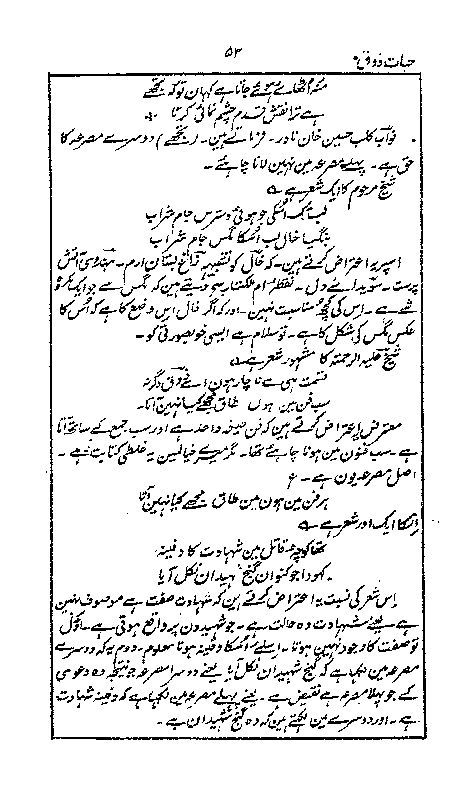 حیات ذوق
۵۳
منہ اٹھائے ہوئے جاتا ہے کہاں تو کہ تجھے
ہے ترا نقش قدم چشم نمائی کرتا
نواب کلب حسین خان نادر۔ فرماتے ہین۔ (تجھے) دوسرے مصرعہ کا
حق ہے۔ پہلے مصرعہ مین نہین لانا چاہئے۔
شیخ مرحوم کا ایک شعر ہے
لب تک اسکی جو ہوئی دسترس جام شراب
بنگیا خال لب اسکا مگس جام شراب
اسپر یہ اعتراض کرتے ہین۔ کہ خال کو تشبیہ زاغ بستان ارم۔ ہندوی آتش
پرست۔ سویدائے دل۔ نقطہ وغیرہ سے دیتے ہین کہ مگس سے جو ایک مکروہ
شے ہے۔ اس کی کچھ مناسبت نہین۔ اور کہ اگر خال اس وضع کا ہے کہ اس کا
عکس مگس کی شکل کا ہے۔ تو سلام ہے ایسی خوبصورتی کو۔
شیخ علیہ الرحمتہ کا مشہور شعر ہے
قسمت ہی سے ناچار ہون اے ذوق وگرنہ
سب فن مین ہون طاق مجھے کیا نہین آتا۔
معترض یہ اعتراض کرتے ہین کہ فن صیغہ واحد ہے اور سب جمع کے ساتھ آتا
ہے۔ سب فنون مین ہونا چاہئے تھا۔ مگر میرے خیال مین یہ غلطی کتابت ہے۔
اصل مصرعہ یون ہے۔
ہر فن مین ہون مین طاق مجھے کیا نہین آتا
انکا ایک اور شعر ہے
تھا کوچہ قاتل مین شہادت کا دفینہ
کھودا جو کنوان گنج شہیدان نکل آیا
اس شعر کی نسبت یہ اعتراض کرتے ہین کہ شہادت صفت ہے موصوف نہین
ہے۔ یعنے شہادت وہ حالت ہے۔ جو شہیدون پر واقع ہوتی ہے۔ اول
تو صفت کا وجود نہین ہوتا۔ اسلئے اسکا دفینہ ہونا معلوم۔ دوم یہ کہ دوسرے
مصرعہ مین کہا ہے کہ گنج شہیدان نکل آیا۔ یعنے دوسرا مصرعہ جو نتیجہ دہ دعوی
کے جو پہلا مصرعہ ہے نقیض ہے۔ یعنے پہلے مصرعہ مین لکھا ہے کہ دفینہ شہادت
ہے۔ اور دوسرے مین لکھتے ہین کہ وہ گنج شہیدان ہے۔